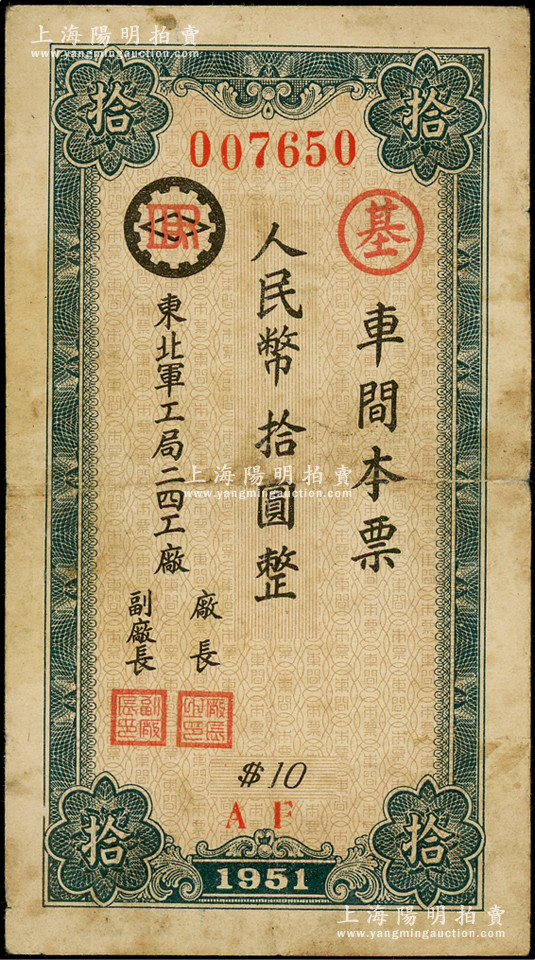 上海陽明拍賣
www.yangmingauction.com
拾
拾
007650
基
車間本票
人民幣拾圓整
東北軍工局二四工廠
廠長
副廠長
廠長之印
副廠長印
上海陽明拍賣
www.yangmingauction.com
$10
A F
拾
拾
1951
上海陽明拍賣
www.yangmingauction.com